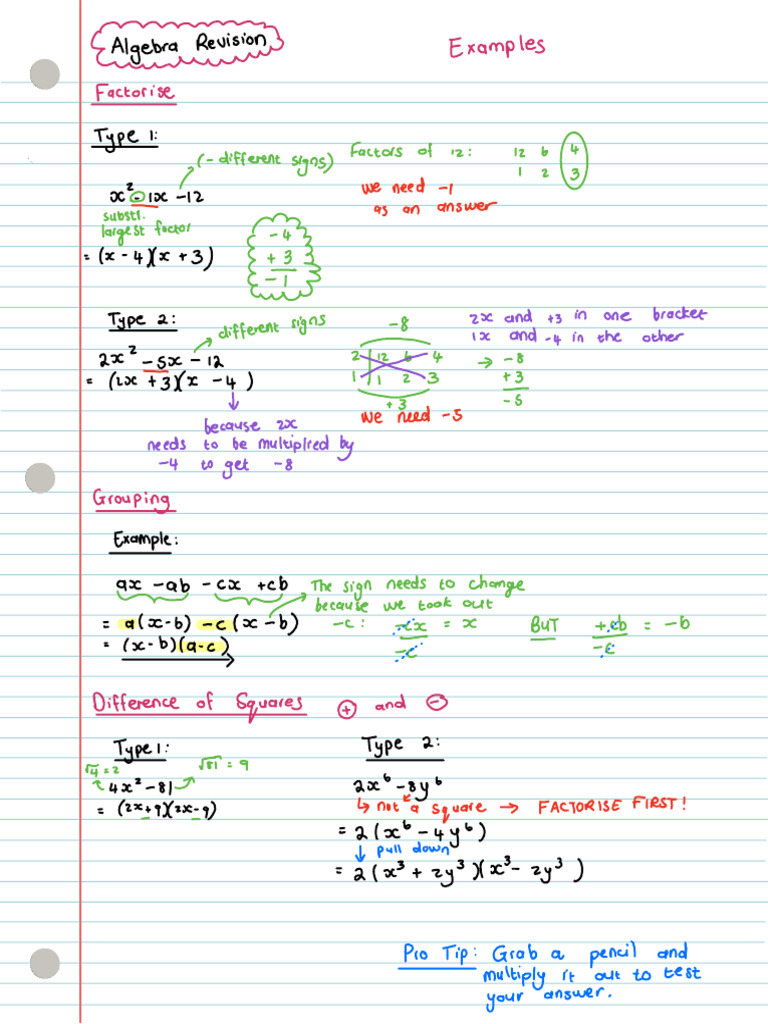 Algebra Revision
Examples
Factorise
Type 1:
(- different signs)
Factors of 12: 12 6 4
1 2 3
x² - 1x - 12
we need -1
as an answer
subst.
largest factor
= (x - 4)(x + 3)
- 4
+ 3
- 1
Type 2:
different signs
2x² - 5x - 12
= (2x + 3)(x - 4)
-8
2 12 6 4
1 1 2 3
+ 3
we need -5
2x and +3 in one bracket
1x and -4 in the other
→ -8
+ 3
- 5
because 2x
needs to be multiplied by
-4 to get -8
Grouping
Example:
ax - ab - cx + cb
The sign needs to change
because we took out
= a(x - b) - c(x - b)
-c: -cx/-c = x BUT +cb/-c = -b
= (x - b)(a - c)
Difference of Squares + and -
Type 1:
√4 = 2
√81 = 9
4x² - 81
= (2x+9)(2x-9)
Type 2:
2x⁶ - 8y⁶
↳ not a square → FACTORISE FIRST!
= 2(x⁶ - 4y⁶)
↓ pull down
= 2(x³ + 2y³)(x³ - 2y³)
Pro Tip: Grab a pencil and
multiply it out to test
your answer.